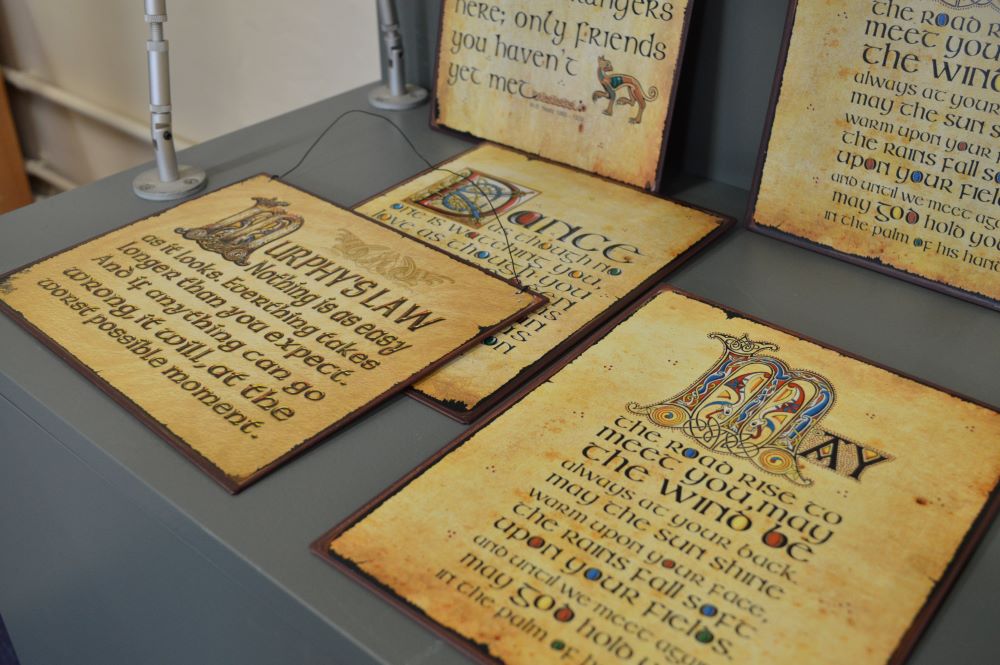 here; only friends
you haven't
yet met
the road
meet you,
the wind
always at your
may the sun
warm upon your
the rains fall
upon your
and until we meet
may god hold you
in the palm of his
MURPHY'S LAW
Nothing is as easy
as it looks. Everything takes
longer than you expect.
And if anything can go
wrong, it will, at the
worst possible moment.
Dance
as though no
one is watching you,
love as though you
May
the road rise to
meet you, may
the wind be
always at your back
may the sun shine
warm upon your face,
the rains fall soft
upon your fields.
and until we meet again
may god hold you
in the palm of his